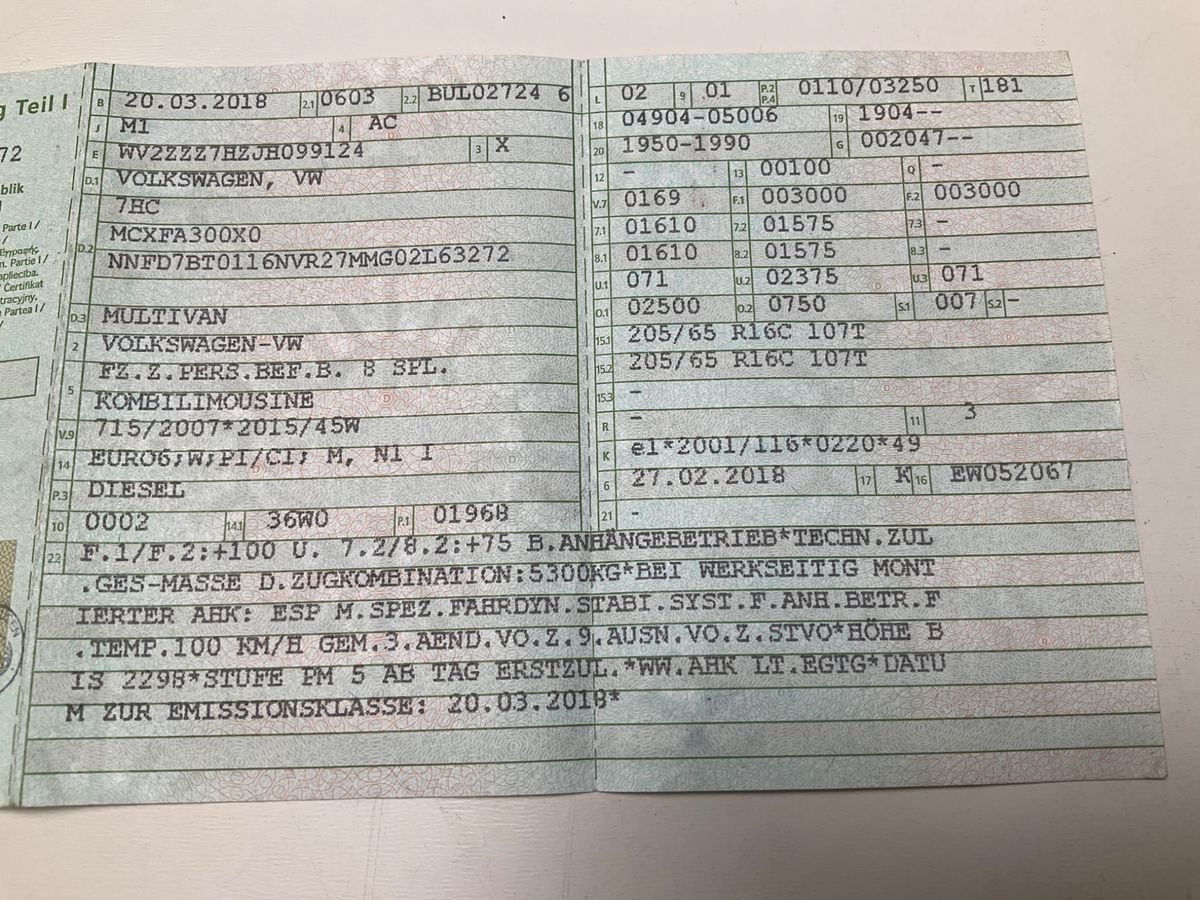 g Teil I
72
blik
Parte I /
Εγγραφής
n. Partie I /
apliecība.
/ Certifikat
tracyjny.
e Partea I /
B 20.03.2018 2.1 0603 2.2 BUL02724 6
J M1 4 AC
E WV2ZZZ7HZJH099124 3 X
D.1 VOLKSWAGEN, VW
7HC
D.2 MCXFA300X0
NNFD7BT0116NVR27MMG02L63272
D.3 MULTIVAN
2 VOLKSWAGEN-VW
5 FZ.Z.PERS.BEF.B. 8 SPL.
KOMBILIMOUSINE
V.9 715/2007*2015/45W
14 EURO6;W;PI/CI; M, N1 I
P.3 DIESEL
10 0002 14.1 36W0 P.1 01968
L 02 9 01 P.2 P.4 0110/03250 T 181
18 04904-05006 19 1904--
20 1950-1990 G 002047--
12 - 13 00100 Q -
V.7 0169 F.1 003000 F.2 003000
7.1 01610 7.2 01575 7.3 -
8.1 01610 8.2 01575 8.3 -
U.1 071 U.2 02375 U.3 071
O.1 02500 O.2 0750 S.1 007 S.2 -
15.1 205/65 R16C 107T
15.2 205/65 R16C 107T
15.3 -
R - 11 3
K e1*2001/116*0220*49
6 27.02.2018 17 K 16 EW052067
21 -
22 F.1/F.2:+100 U. 7.2/8.2:+75 B.ANHÄNGEBETRIEB*TECHN.ZUL
.GES-MASSE D.ZUGKOMBINATION:5300KG*BEI WERKSEITIG MONT
IERTER AHK: ESP M.SPEZ.FAHRDYN.STABI.SYST.F.ANH.BETR.F
.TEMP.100 KM/H GEM.3.AEND.VO.Z.9.AUSN.VO.Z.STVO*HÖHE B
IS 2298*STUFE PM 5 AB TAG ERSTZUL.*WW.AHK LT.EGTG*DATU
M ZUR EMISSIONSKLASSE: 20.03.2018*